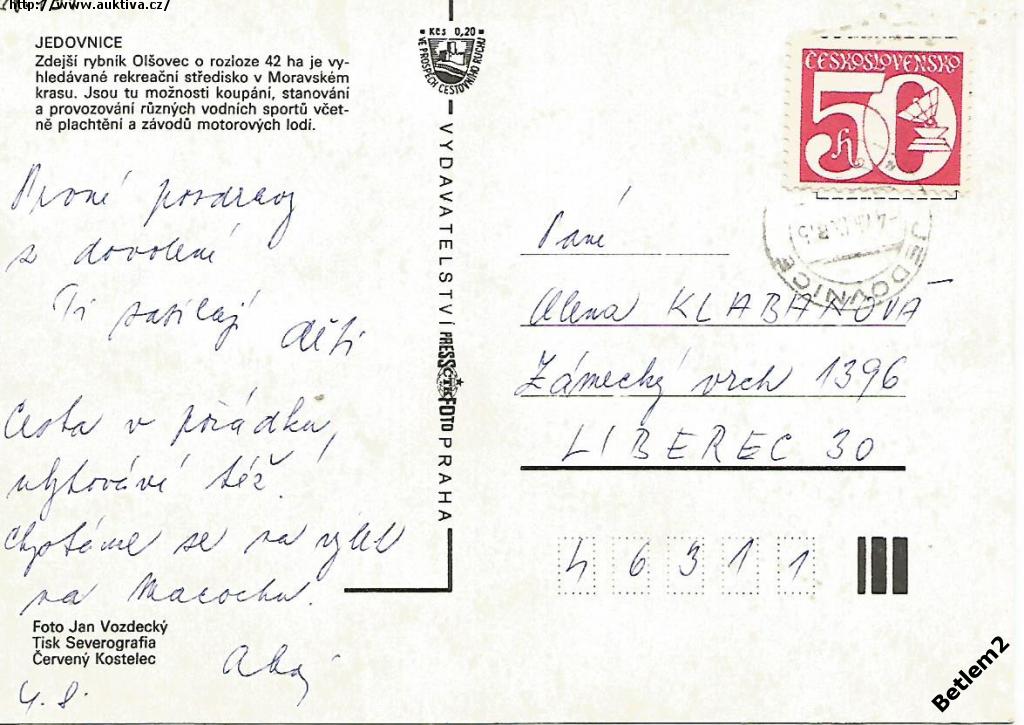 http://www.auktiva.cz/
JEDOVNICE
Zdejší rybník Olšovec o rozloze 42 ha je vy-
hledávané rekreační středisko v Moravském
krasu. Jsou tu možnosti koupání, stanování
a provozování různých vodních sportů včet-
ně plachtění a závodů motorových lodí.
První pozdravy
z dovolené
Ti zasílají
děti
Cesta v pořádku,
ubytování též.
Chystáme se na výlet
na Macochu.
Ahoj
4.8.
Foto Jan Vozdecký
Tisk Severografia
Červený Kostelec
Kčs 0,20
VE PROSPĚCH CESTOVNÍHO RUCHU
VYDAVATELSTVÍ PRESSFOTO PRAHA
ČTK
ČESKOSLOVENSKO
50 h
JEDOVNICE
Paní
Alena KLABANOVÁ
Zámecký vrch 1396
LIBEREC 30
46311
Betlem2